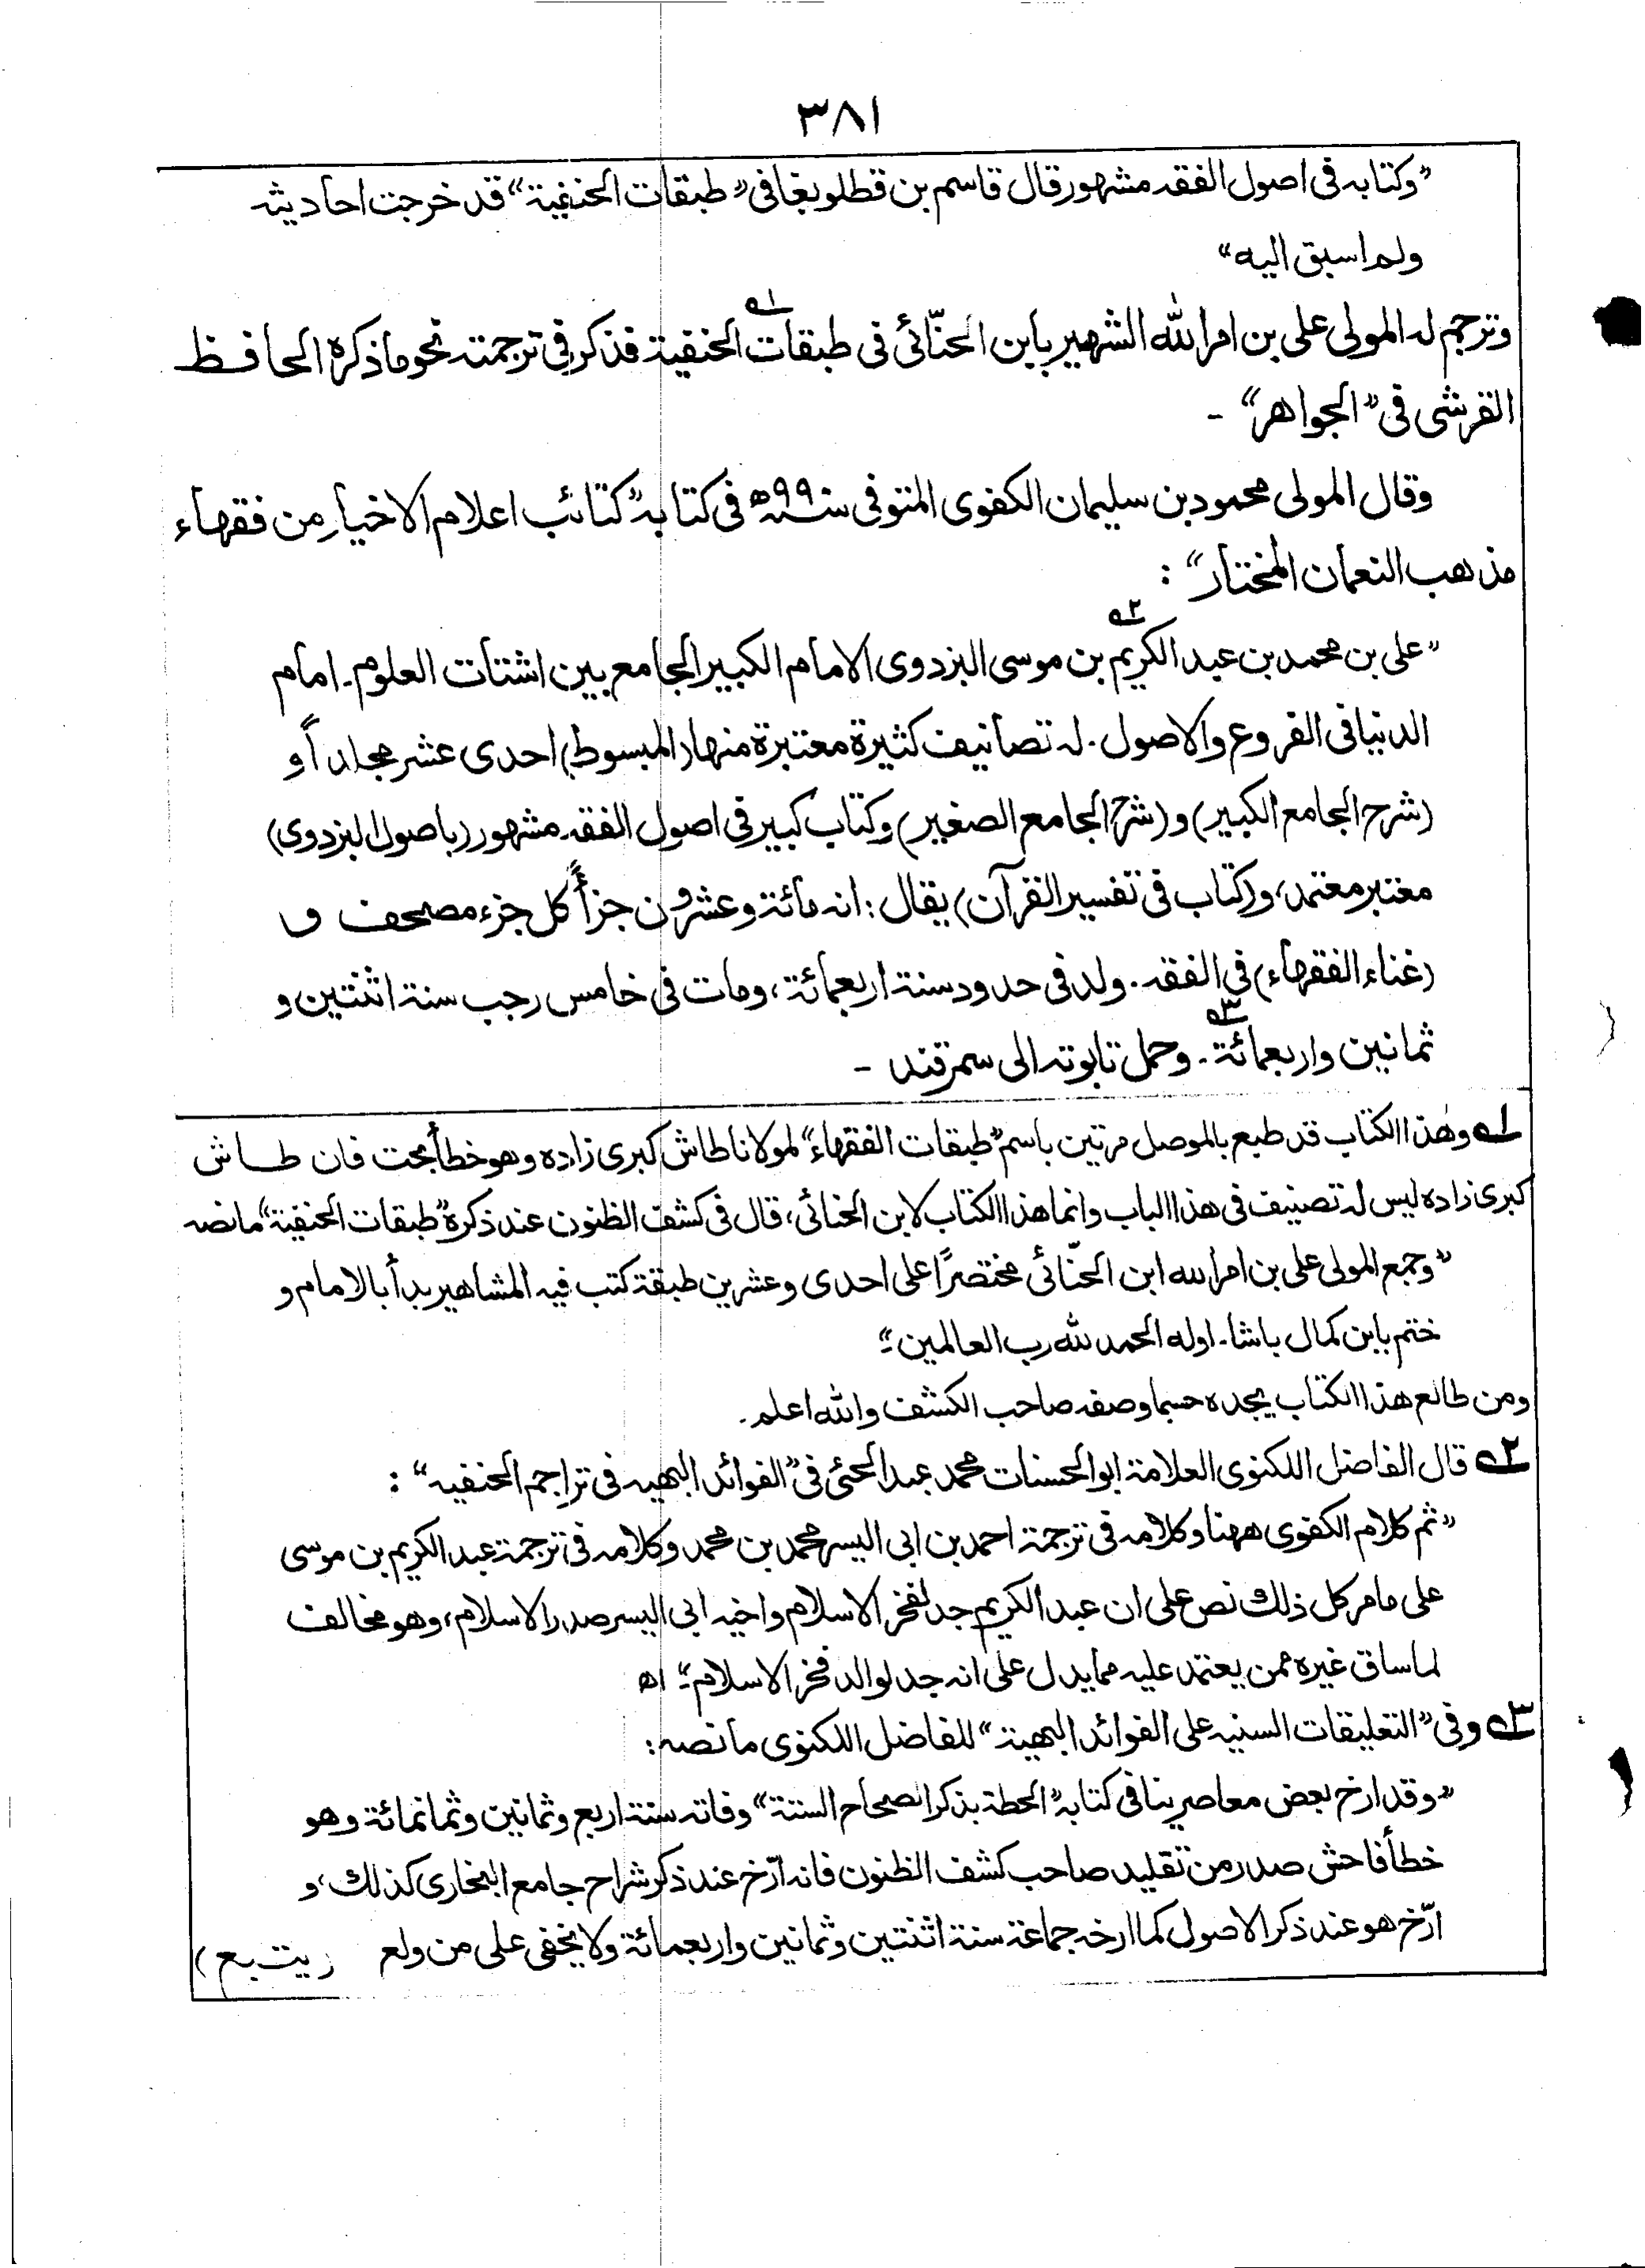 ٣٨١
”وكتابه فى اصول الفقه مشهور قال قاسم بن قطلوبغا فى ”طبقات الحنفية“ قد خرجت احاديثه
ولم اسبق اليه“
وترجم له المولى على بن امر الله الشهير بابن الحنّائى فى طبقات الحنفية فذكر فى ترجمته نحو ما ذكره الحافظ
القرشى فى ”الجواهر“ -
وقال المولى محمود بن سليمان الكفوى المتوفى سنة ٩٩٠ﻫ فى كتابه ”كتائب اعلام الاخيار من فقهاء
مذهب النعمان المختار“ :
”على بن محمد بن عبد الكريم بن موسى البزدوى الامام الكبير الجامع بين اشتات العلوم۔ امام
الدنيا فى الفروع والاصول . له تصانيف كثيرة معتبرة منها (المبسوط) احدى عشر مجلداً و
(شرح الجامع الكبير) و (شرح الجامع الصغير) وكتاب كبير فى اصول الفقه مشهور (باصول البزدوى)
معتبر معتمد، و(كتاب فى تفسير القرآن) يقال : انه مائة وعشرون جزأً كل جزء مصحف و
(غناء الفقهاء) فى الفقه . ولد فى حدود سنة اربعمائة، ومات فى خامس رجب سنة اثنتين و
ثمانين واربعمائة . وحمل تابوته الى سمرقند -
١ـه وهٰذا الكتاب قد طبع بالموصل مرتين باسم ”طبقات الفقهاء“ لمولانا طاش كبرى زاده وهو خطأ بحت فان طاش
كبرى زاده ليس له تصنيف فى هذا الباب وانما هذا الكتاب لابن الحنائى، قال فى كشف الظنون عند ذكره ”طبقات الحنفية“ ما نصه
”وجمع المولى على بن امر الله ابن الحنّائى مختصرًا على احدى وعشرين طبقة كتب فيه المشاهير بدأ بالامام و
ختم بابن كمال باشا۔ اوله الحمد لله رب العالمين“
ومن طالع هذا الكتاب يجده حسبما وصفه صاحب الكشف والله اعلم .
٢ـه قال الفاضل اللكنوى العلامة ابو الحسنات محمد عبد الحئى فى ”الفوائد البهيه فى تراجم الحنفيه“ :
”ثم كلام الكفوى ههنا وكلامه فى ترجمة احمد بن ابى اليسر محمد بن محمد وكلامه فى ترجمة عبد الكريم بن موسى
على ما مر كل ذلك نص على ان عبد الكريم جد لفخر الاسلام واخيه ابى اليسر صدر الاسلام، وهو مخالف
لما ساق غيره ممن يعتمد عليه مما يدل على انه جد لوالد فخر الاسلام“ اھ
٣ـه وفى ”التعليقات السنيه على الفوائد البهية“ للفاضل اللكنوى ما نصه:
”وقد ارخ بعض معاصرينا فى كتابه ”الحطة بذكر الصحاح الستة“ وفاته سنة اربع وثمانين وثمانمائة وهو
خطأ فاحش صدر من تقليد صاحب كشف الظنون فانه ارّخ عند ذكر شراح جامع البخارى كذلك، و
ارّخ هو عند ذكر الاصول كما ارخه جماعة سنة اثنتين وثمانين واربعمائة ولا يخفى على من ولع (يتبع)